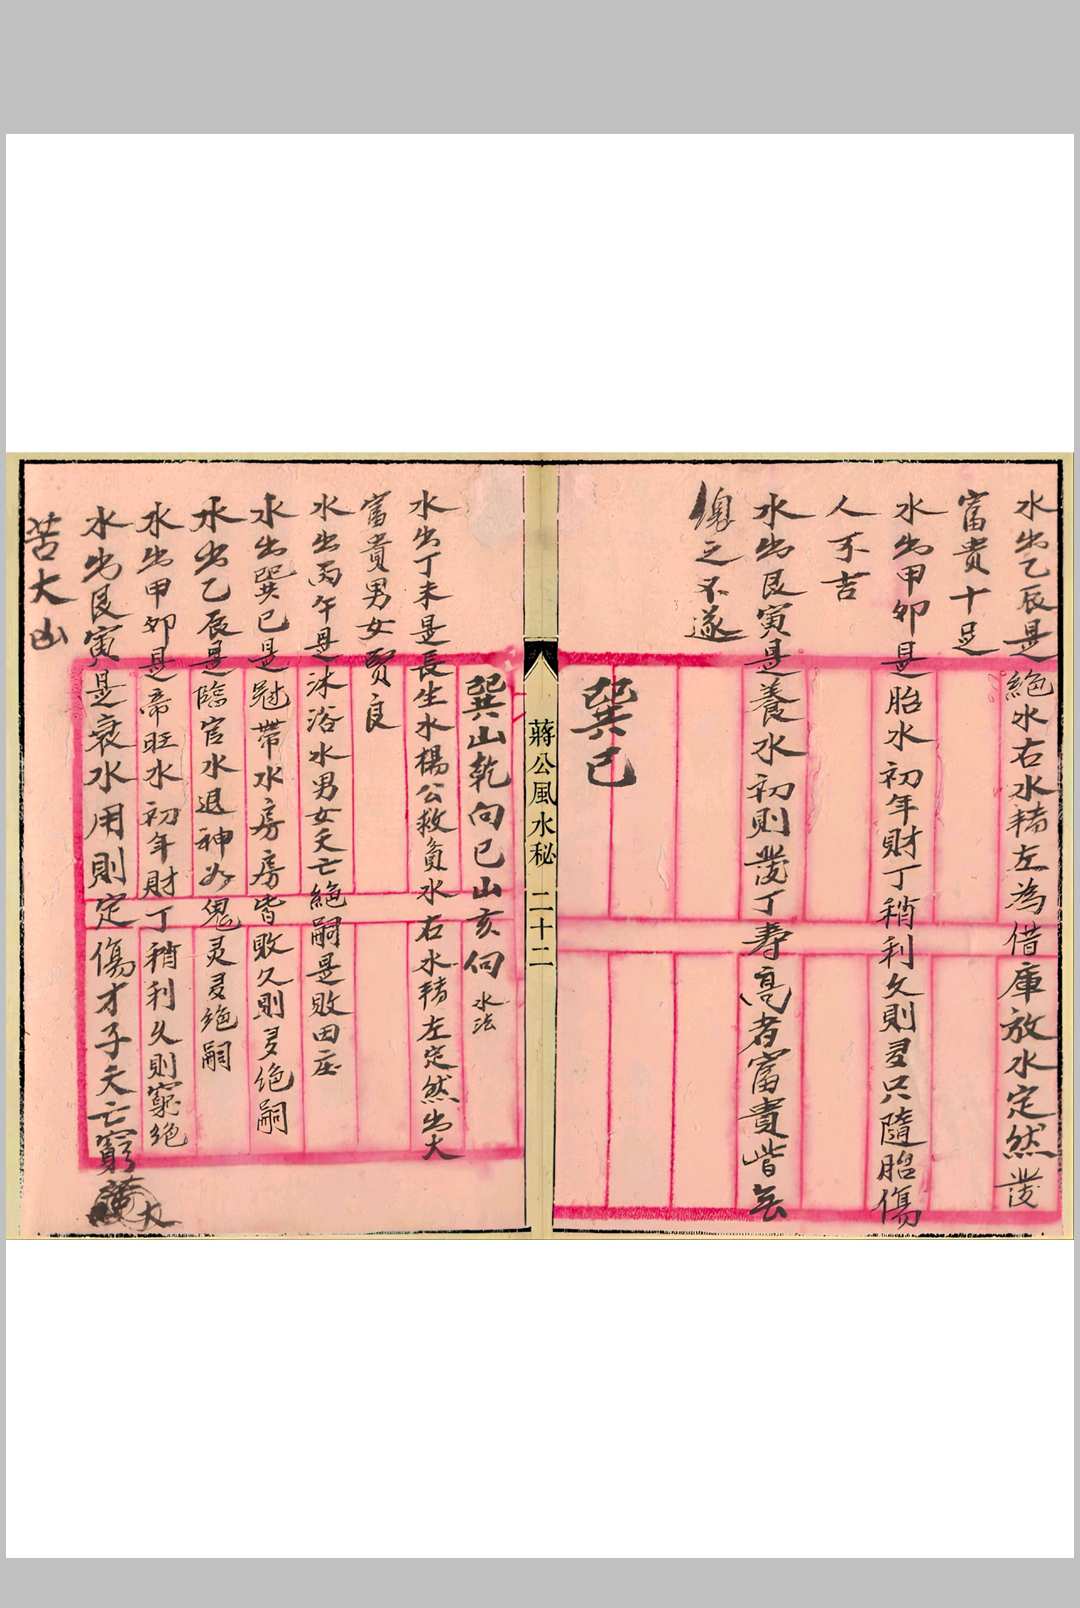 水出乙辰是絕水右水轉左為借庫放水定然發
富貴十足
水出甲卯是胎水初年財丁稍利久則多只隨胎傷
人不吉
水出艮寅是養水初則發丁壽高者富貴皆無
總之不遂
巽巳
蔣公風水秘 二十二
巽山乾向巳山亥向 水法
水出丁未是長生水楊公救貧水右水轉左定然出大
富貴男女賢良
水出丙午是沐浴水男女夭亡絕嗣是敗田庄
水出巽巳是冠帶水房房皆敗久則多绝嗣
水出乙辰是臨官水退神如鬼灵多绝嗣
水出甲卯是帝旺水初年財丁稍利久則窮绝
水出艮寅是衰水用則定傷才子夭亡窮
大
苦大凶